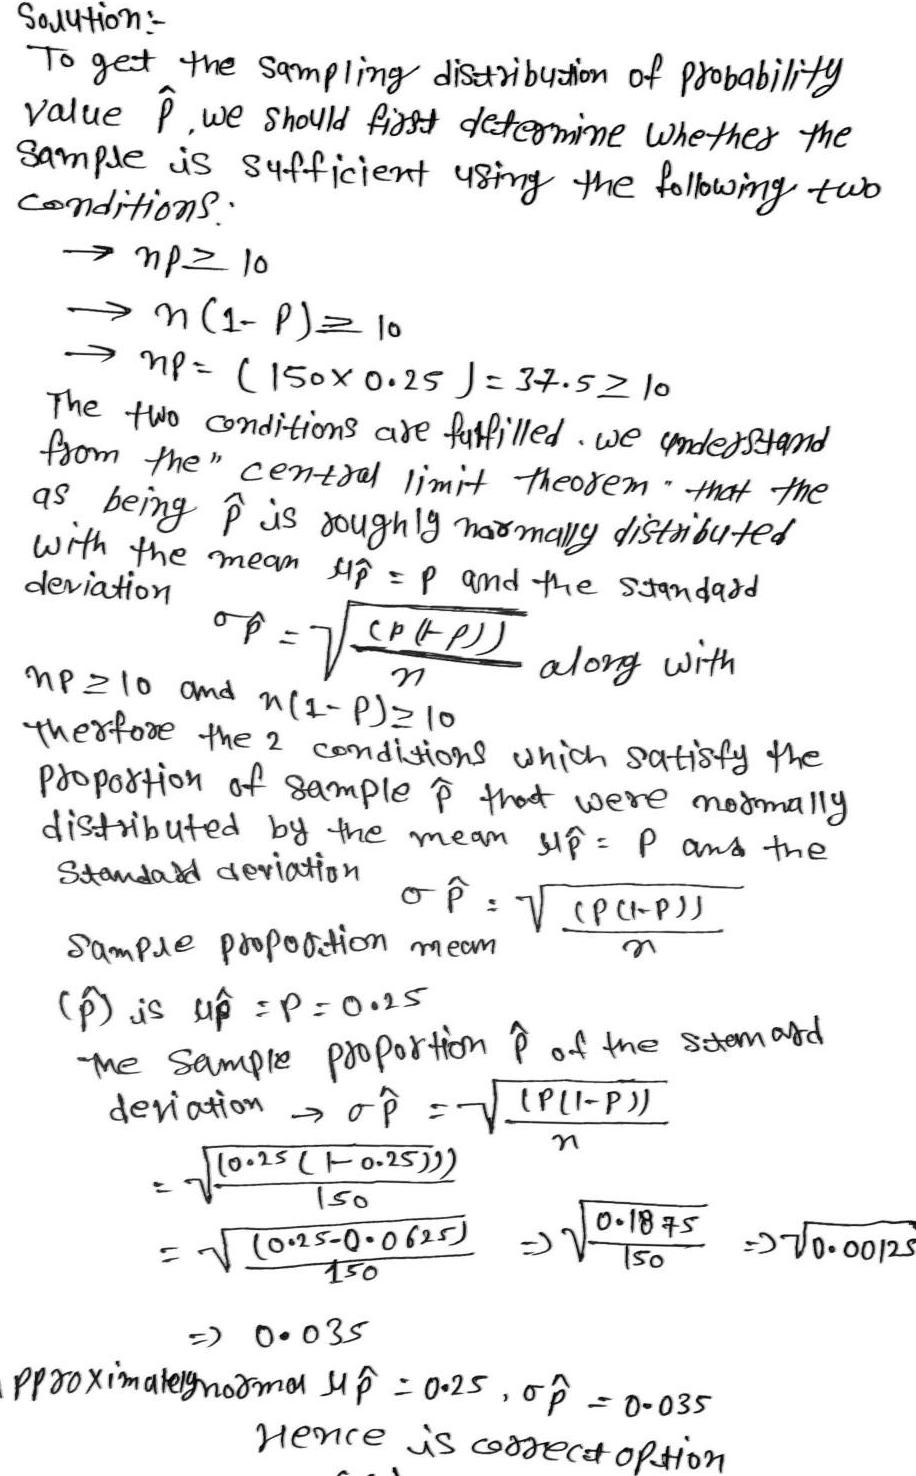 Solution:-
To get the sampling distribution of probability
value p̂, we should first determine whether the
sample is sufficient using the following two
conditions:
→ np ≥ 10
→ n(1-P) ≥ 10
→ np = (150 × 0.25) = 37.5 ≥ 10
The two conditions are fulfilled. we understand
from the "central limit theorem" that the
as being p̂ is roughly normally distributed
with the mean μp̂ = p and the standard
deviation
σp̂ = √(p(1-p))/n along with
np ≥ 10 and n(1-P) ≥ 10
therfore the 2 conditions which satisfy the
proportion of sample p̂ that were normally
distributed by the mean μp̂ = P and the
standard deviation
σp̂ = √(P(1-P))/n
Sample proportion mean
(p̂) is μp̂ = P = 0.25
The Sample proportion p̂ of the standard
deviation → σp̂ = √(P(1-P))/n
= √(0.25(1-0.25)))/150
= √(0.25-0.0625)/150 => √0.1875/150 => √0.00125
=> 0.035
pproximately normal μp̂ = 0.25, σp̂ = 0.035
Hence is correct option